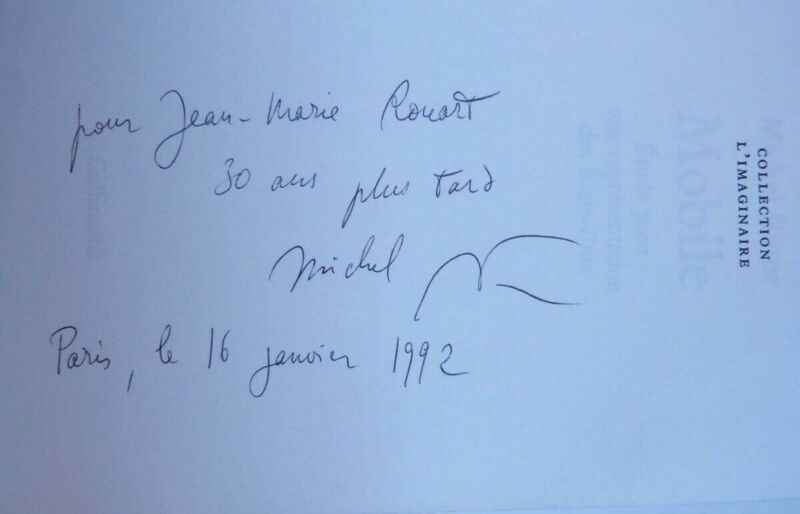 pour Jean-Marie Rouart
30 ans plus tard
Michel
Paris, le 16 janvier 1992
COLLECTION
L'IMAGINAIRE
Mobile
Étude pour
une représentation
des États-Unis
Gallimard